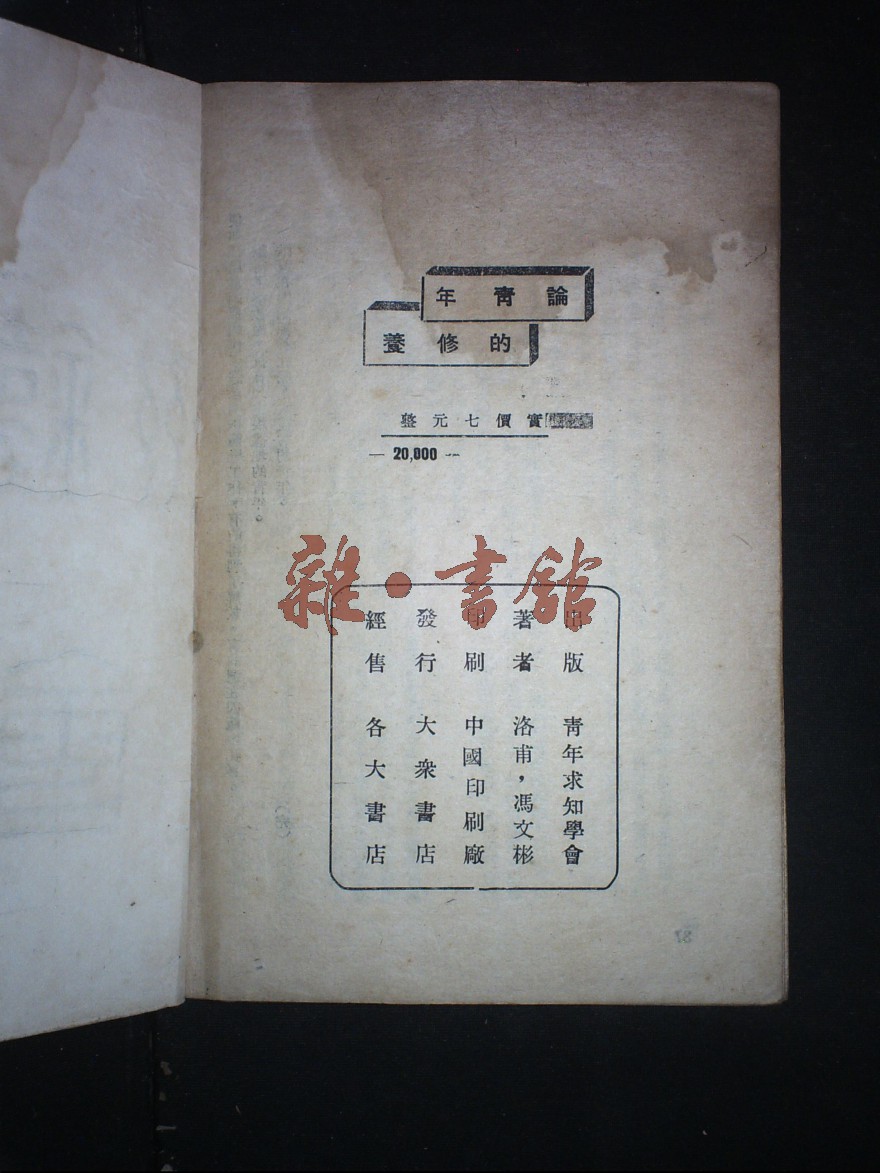 論青年
的修養
實價七元整
— 20,000 —
出版 青年求知學會
著者 洛甫，馮文彬
印刷 中國印刷廠
發行 大衆書店
經售 各大書店
雜·書館